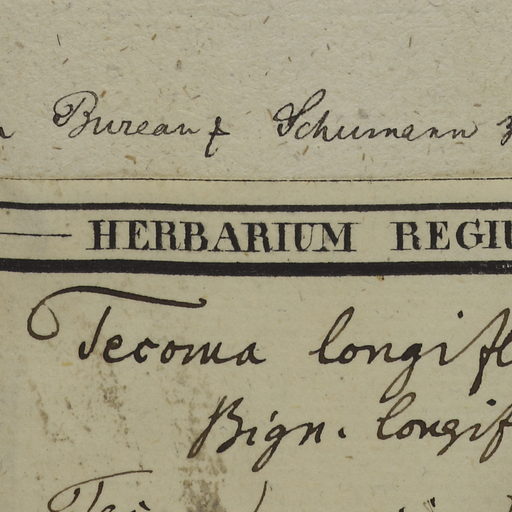 Bureau & Schumann
HERBARIUM REGIU
Tecoma longifl
Bign. longif